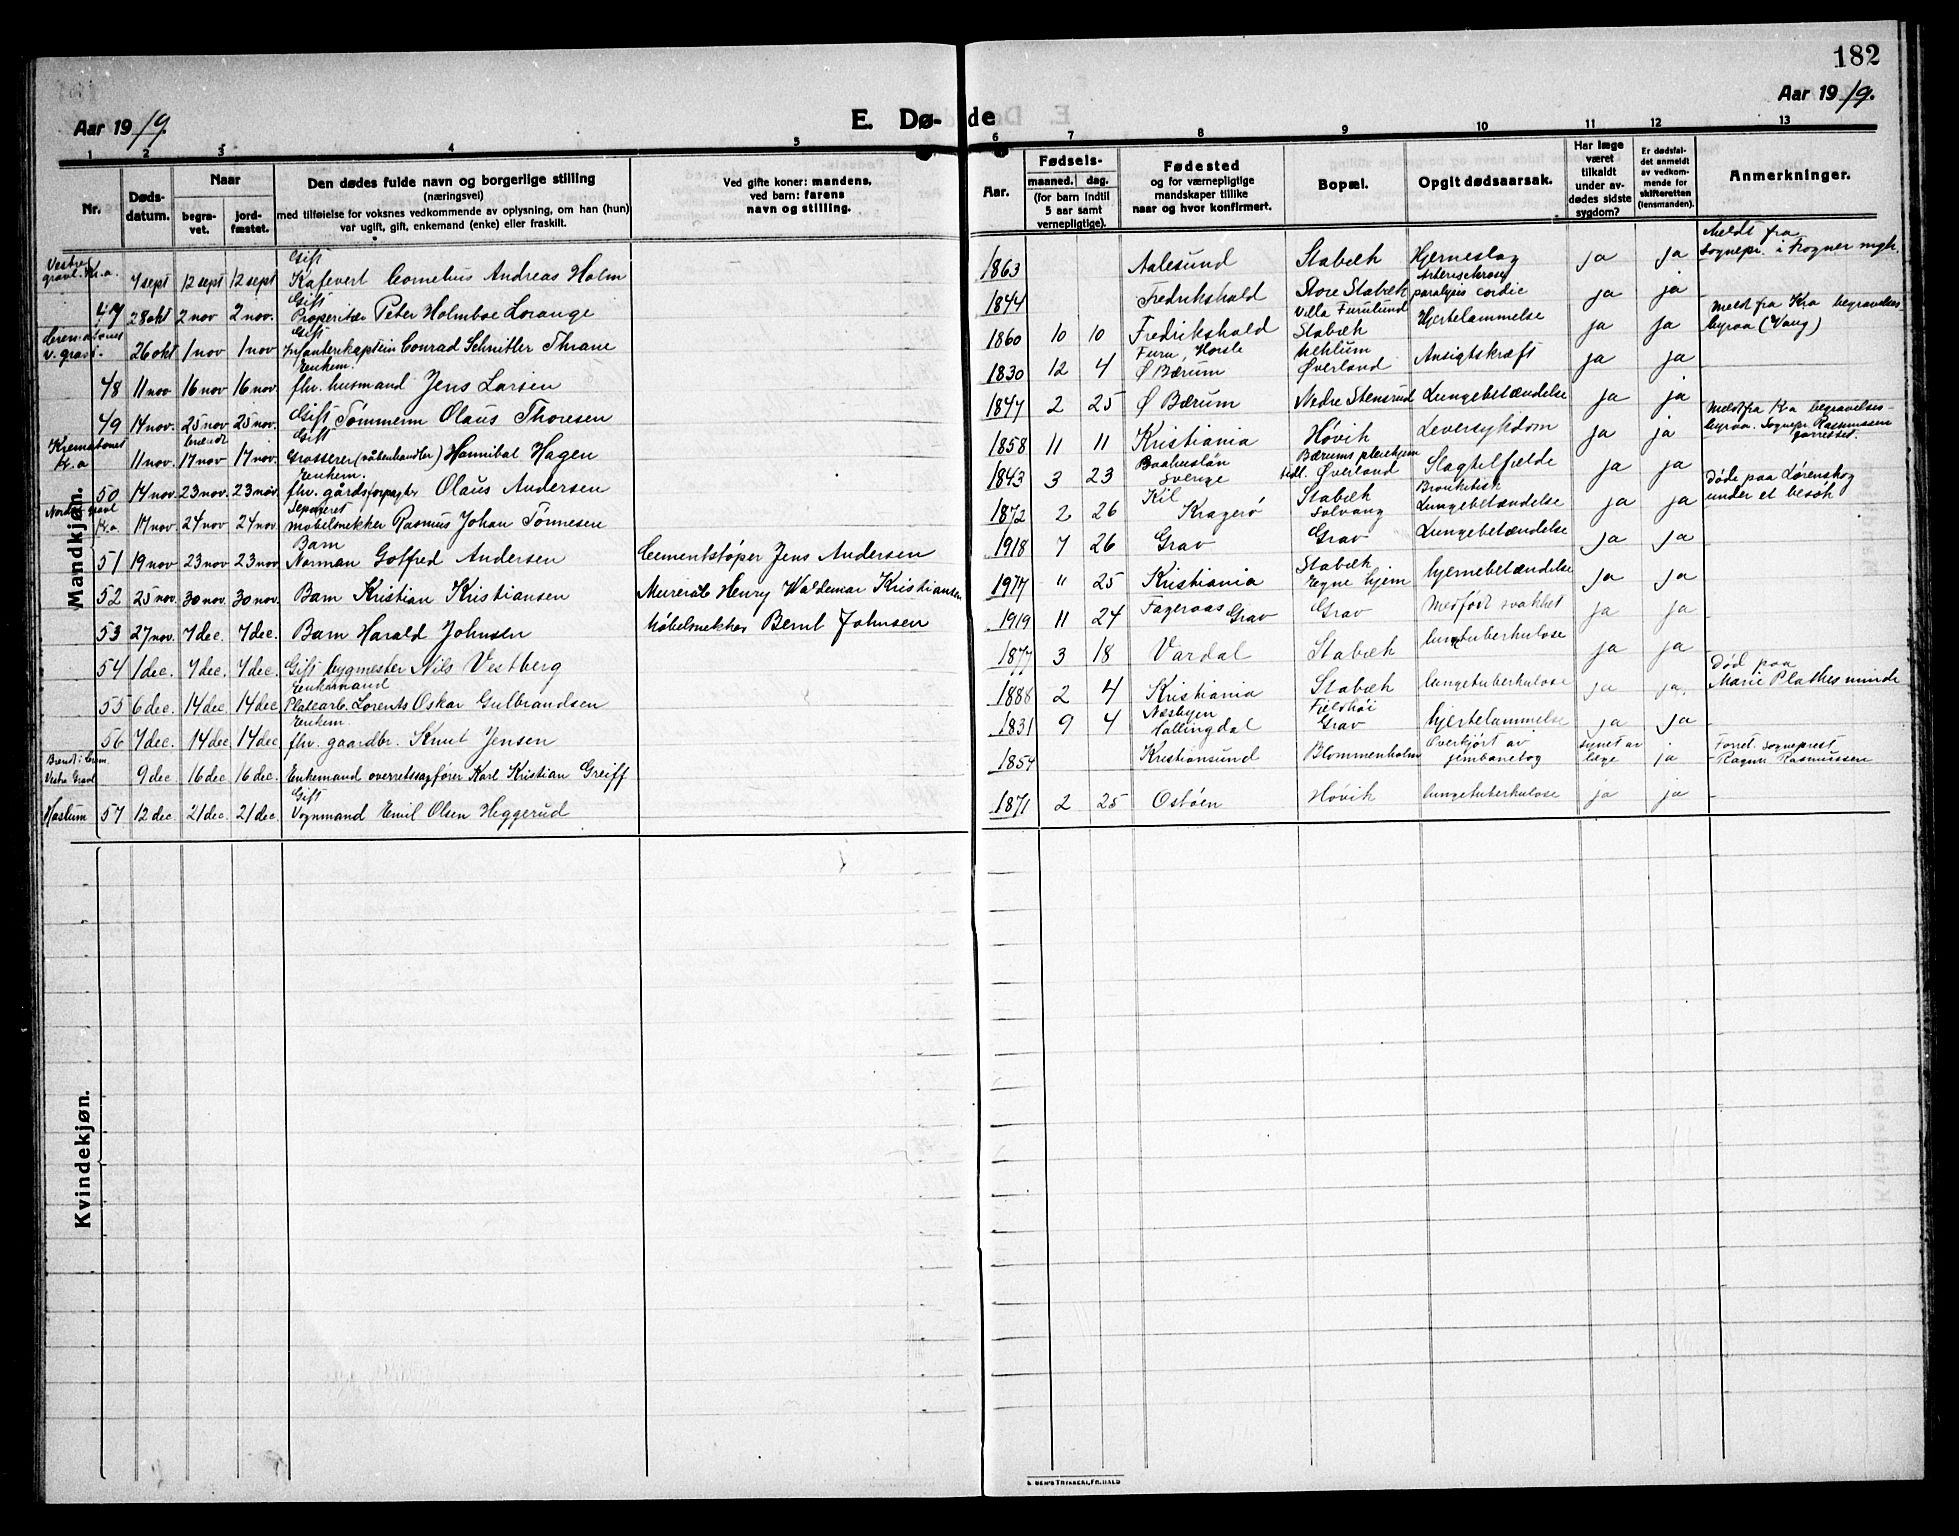 182
Aar 1919.
Aar 1919.
E. Dø- de
1 2 3 4 5 6 7 8 9 10 11 12 13
Nr.
Døds-
datum.
Naar
begra-
vet.
jord-
fæstet.
Den dødes fulde navn og borgerlige stilling
(næringsvei)
med tilføielse for voksnes vedkommende av oplysning, om han (hun)
var ugift, gift, enkemand (enke) eller fraskilt.
Ved gifte koner: mandens,
ved barn: farens
navn og stilling.
Aar.
Fødsels-
maaned. dag.
(for barn indtil
5 aar samt
vernepligtige).
Fødested
og for værnepligtige
mandskaper tillike
naar og hvor konfirmert.
Bopæl.
Opgit dødsaarsak.
Har læge
været
tilkaldt
under av-
dødes sidste
sygdom?
Er dødsfal-
det anmeldt
av vedkom-
mende for
skifteretten
(lensmanden).
Anmerkninger.
Mandkjøn.
Vestre gravl. Kr.a. 4 sept 12 sept 12 sept Gift Cornelius Andreas Holm 1863 Aalesund Stabæk Hjerneslag ja ja Meldt fra sognepr. i Frogner mgh.
47 28 okt 2 nov 2 nov. Gift Proprietær Peter Holmboe Lorange 1844 Fredrikshald Store Stabæk Villa Furulund paralysis cordic ja ja
v. gravl. 26 okt 1 nov 1 nov Gift Infanterikaptein Conrad Schnitler Thrane 1860 10 10 Fredrikshald Stabæk Hjertelammelse ja ja Meldt fra Kra begravelses- byraa (Vang)
48 11 nov 16 nov 16 nov. Enkem. fhv. husmand Jens Larsen 1830 12 4 Ø Bærum Øverland Ansigtskræft ja ja
49 14 nov. 25 nov. 25 nov. Gift Tømmerm Olaus Thoresen 1847 2 25 Ø Bærum Nedre Stensrud Lungebetændelse ja ja
Krematoriet Kr.a 11 nov. brændt 17 nov. 17 nov. Gift Grosserer (våbenhandler) Hannibal Hagen 1858 11 11 Kristiania Høvik Leversykdom ja ja Meldt fra Kra begravelses- byraa. Sognepr. Rasmussen forrettet.
50 14 nov. 23 nov. 23 nov. Enkem. fhv. gårdsforpagter Olaus Andersen 1843 3 23 Baahuslän Sverige Bærums pleiehjem Øverland Slagtilfælde ja ja
Nordre gravl Kr.a 17 nov 24 nov 24 nov. Separeret møbelsnekker Rasmus Johan Tønnesen 1872 2 26 Kil Kragerø Stabæk Solvang Bronkitisk Lungebetændelse ja ja Døde paa Lørenskog under et besøk
51 19 nov 23 nov 23 nov Barn Norman Gotfred Andersen Cementstøper Jens Andersen 1918 7 26 Grav Grav Lungebetændelse ja ja
52 25 nov. 30 nov. 30 nov. Barn Kristian Kristiansen Murerarb Henry Waldemar Kristiansen 1917 " 25 Kristiania Stabæk Egne hjem hjernebetændelse ja ja
53 27 nov. 7 dec. 7 dec. Barn Harald Johnsen Møbelsnekker Bernt Johnsen 1919 11 24 Fageraas Grav Grav Medfødt svakhet ja ja
54 1 dec. 7 dec. 7 dec. Gift bygmester Nils Vestberg 1877 3 18 Vardal Stabæk lungetuberkulose ja ja
55 6 dec. 14 dec. 14 dec Enkemand Platearb. Lorents Oskar Gulbrandsen 1888 2 4 Kristiania Stabæk lungetuberkulose ja ja. Død paa Marie Plathes minde
56 7 dec. 14 dec. 14 dec. Enkem fhv. gaardbr. Knut Jensen 1831 9 4 Næsbyen Hallingdal Grav hjertelammelse ja ja
Vestre Gravl 9 dec. 16 dec. 16 dec. Enkemand overretssagfører Karl Kristian Greiff 1854 Kristiansund Blommenholm Overkjørt av jernbanetog synet av læge ja Forret. sogneprest Ragnv Rasmussen
Haslum 57 12 dec. 21 dec. 21 dec. Gift Vognmand Emil Olsen Heggerud 1871 2 25 Ostøen Høvik lungetuberkulose ja ja
Kvindekjøn.